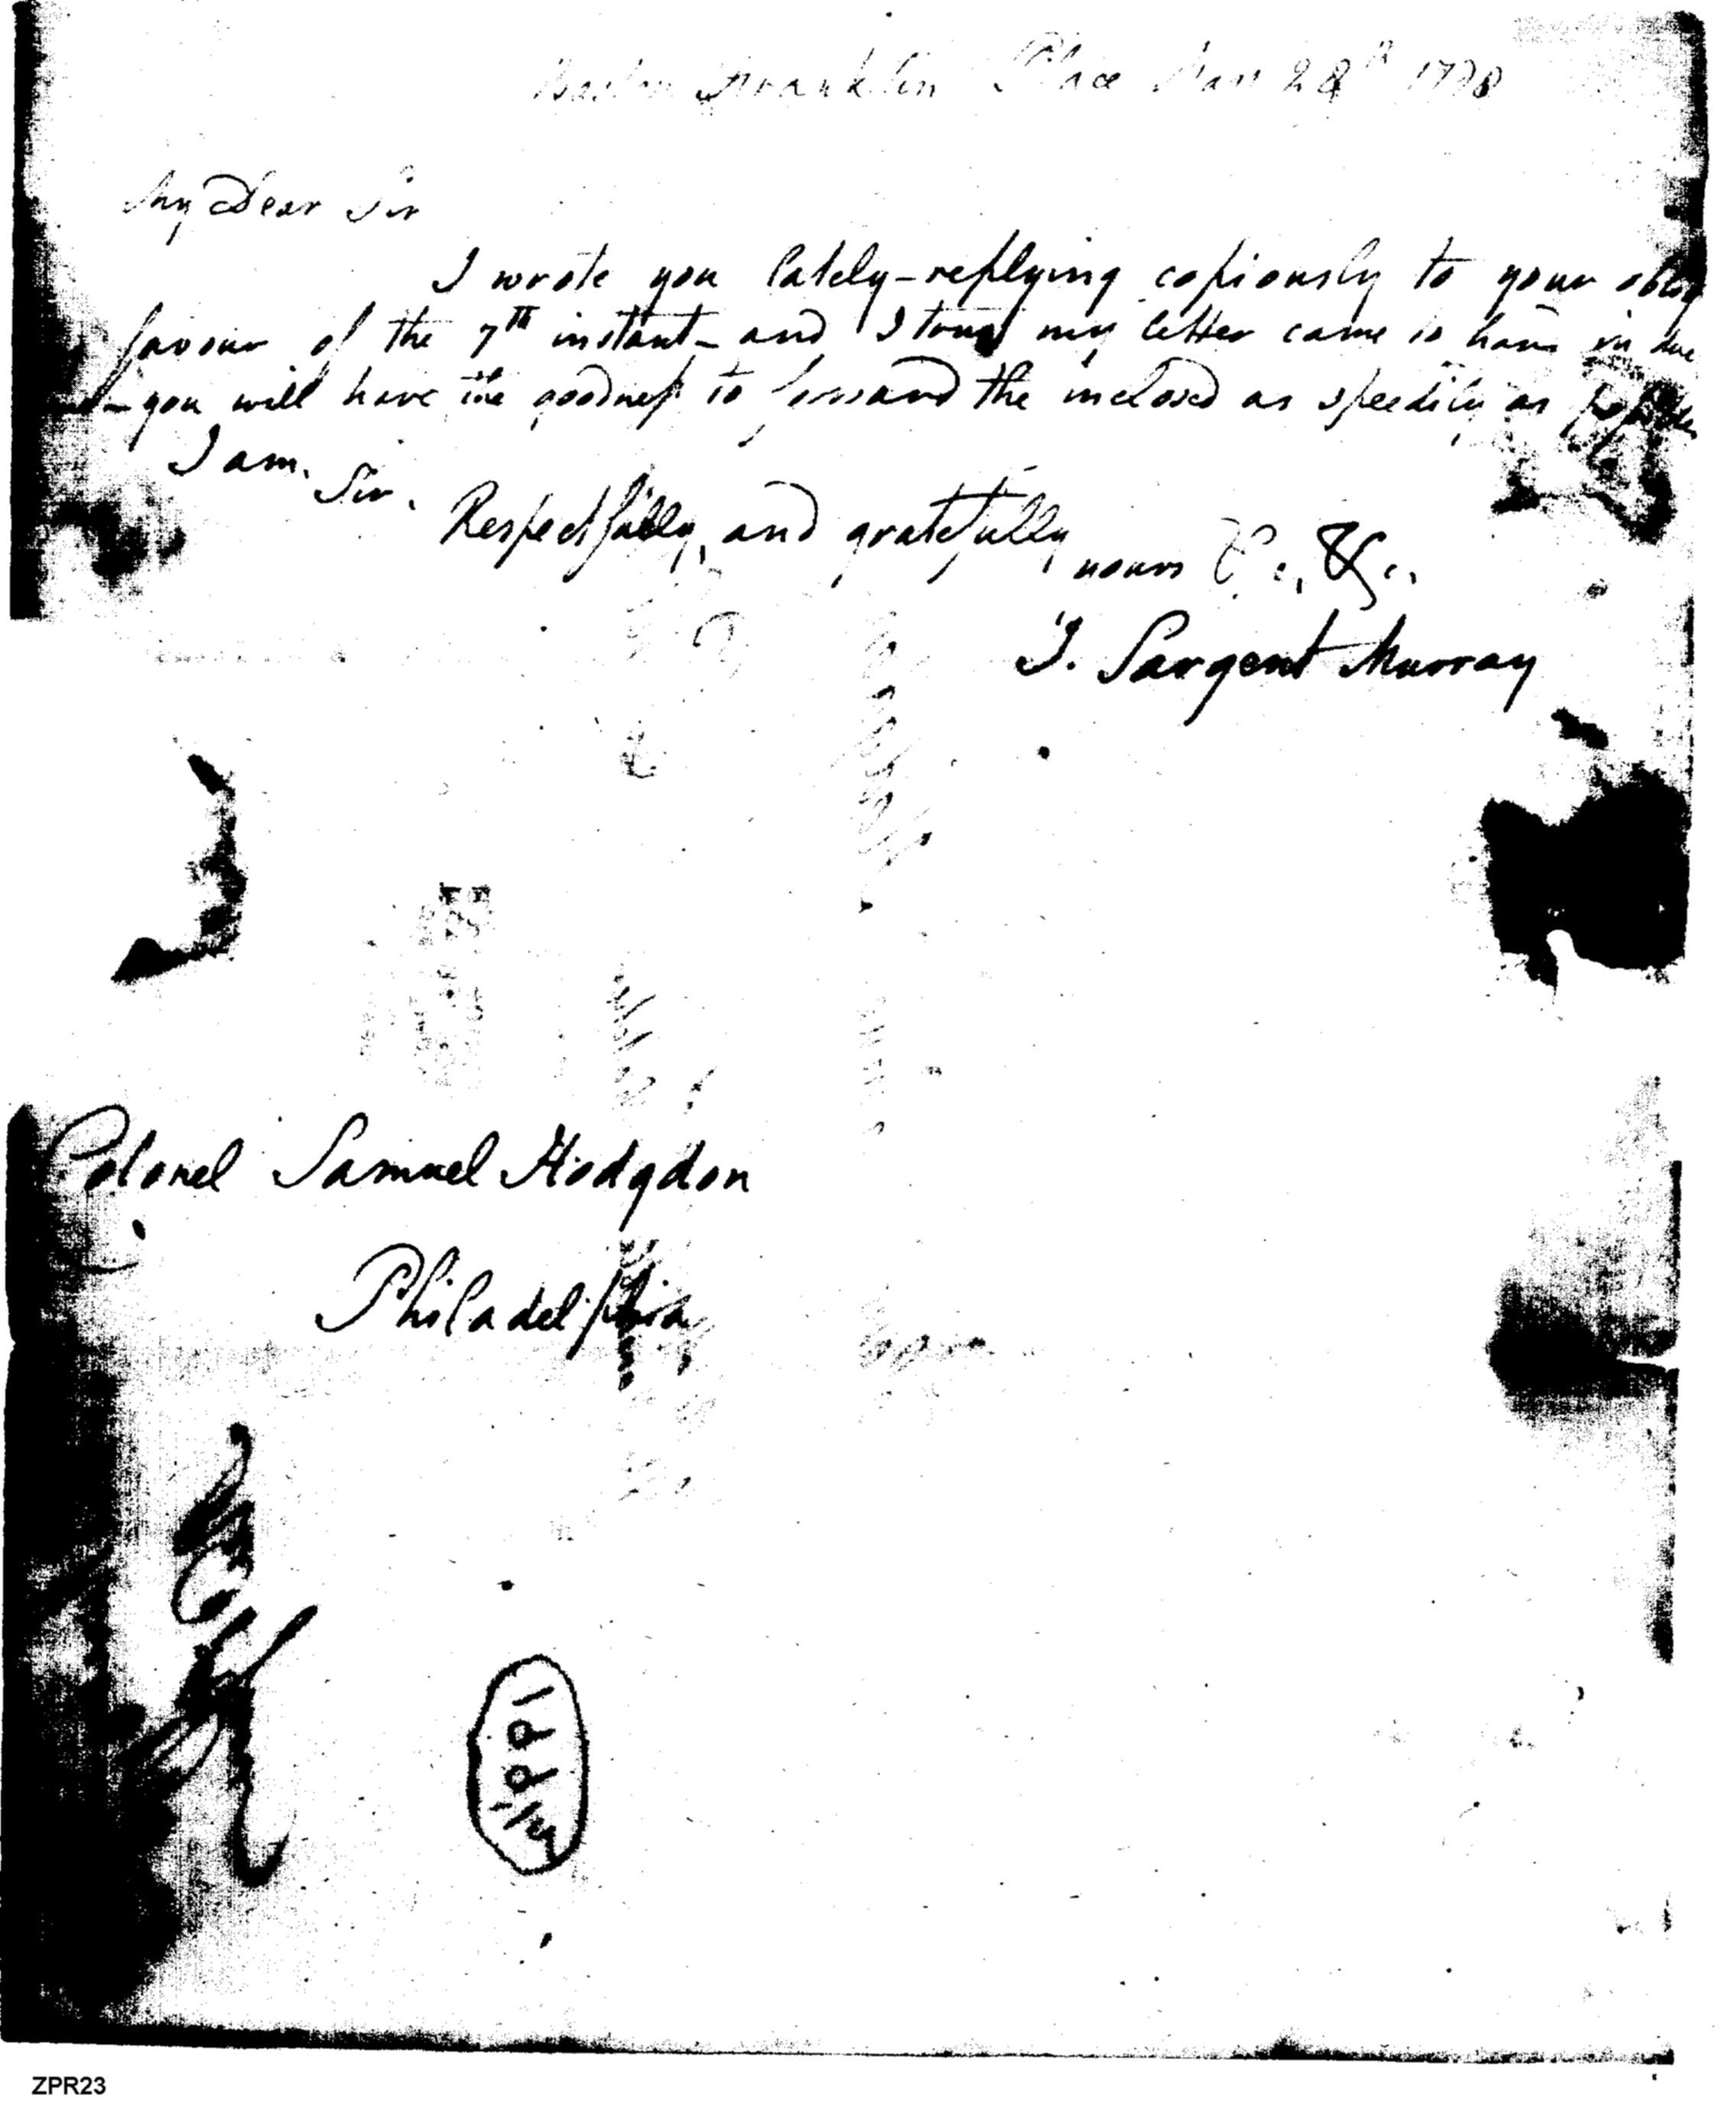 Boston Franklin Place Jan 28th 1798
My Dear Sir
I wrote you lately—replying copiously to your oblig
favour of the 7th instant—and I trust my letter came to hand in due
—you will have the goodness to forward the inclosed as speedily as possible
I am, Sir,
Respectfully, and gratefully
yours &c., &c.,
J. Sargent Murray
Colonel Samuel Hodgdon
Philadelphia
ZPR23